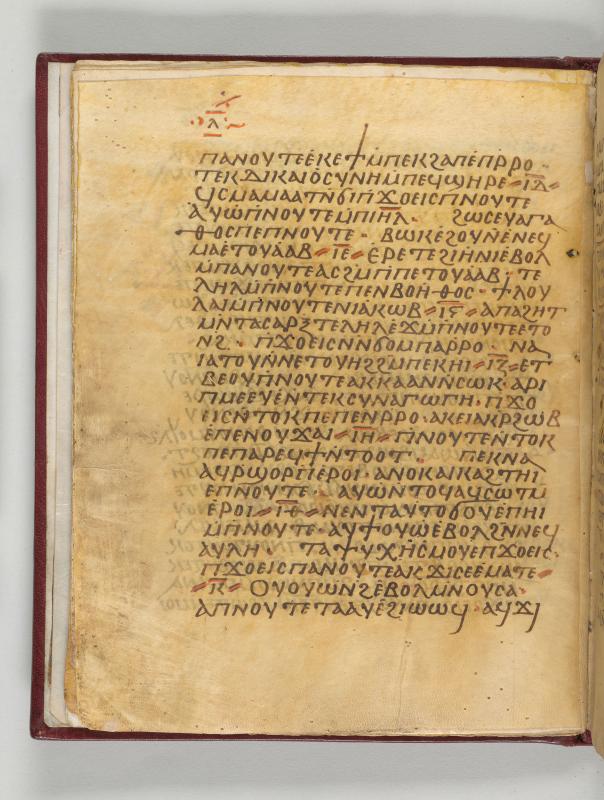 ⲗ̅
ⲡⲁⲛⲟⲩⲧⲉ ⲉⲕⲉϯ ⲙⲡⲉⲕϩⲁⲡ ⲉⲡⲣ̅ⲣⲟ ·
ⲧⲉⲕⲇⲓⲕⲁⲓⲟⲥⲩⲛⲏ ⲙⲡⲉϥϣⲏⲣⲉ ⸗ ⲓ̅ⲇ̅ ⸗
ϥⲥⲙⲁⲙⲁⲁⲧ ⲛ̅ϭⲓ ⲡϫⲟⲉⲓⲥ ⲡⲛⲟⲩⲧⲉ
ⲁⲩⲱ ⲡⲛⲟⲩⲧⲉ ⲙⲡⲓⲏ̅ⲗ̅ · ϩⲱⲥ ⲉⲩⲁⲅⲁ
ⲑⲟⲥ ⲡⲉ ⲡⲛⲟⲩⲧⲉ · ⲃⲱⲕ ⲉϩⲟⲩⲛ ⲉⲛⲉϥ
ⲙⲁ ⲉⲧⲟⲩⲁⲁⲃ ⸗ ⲓ̅ⲉ̅ ⸗ ⲉⲣⲉⲧⲉϩⲓⲏ ⲛⲓⲉⲃⲟⲗ
ⲙⲡⲁⲛⲟⲩⲧⲉ ⲁⲥϩⲙⲡⲡⲉⲧⲟⲩⲁⲁⲃ · ⲧⲉ
ⲗⲏⲗ ⲙⲡⲛⲟⲩⲧⲉ ⲡⲉⲛⲃⲟⲏⲑⲟⲥ · ϯⲗⲟⲩ
ⲗⲁⲓ ⲙⲡⲛⲟⲩⲧⲉ ⲛⲓⲁⲕⲱⲃ ⸗ ⲓ̅ⲋ̅ ⸗ ⲁⲡⲁϩⲏⲧ
ⲙⲛⲧⲁⲥⲁⲣⲝ ⲧⲉⲗⲏⲗ ⲉϫⲙⲡⲛⲟⲩⲧⲉ ⲉⲧⲟ
ⲛϩ · ⲡϫⲟⲉⲓⲥ ⲛⲛϭⲟⲙ ⲡⲁⲣ̅ⲣⲟ · ⲛⲁ
ⲓⲁⲧⲟⲩ ⲛⲛⲉⲧⲟⲩⲏϩ ϩⲙⲡⲉⲕⲏⲓ ⸗ ⲓ̅ⲍ̅ ⸗ ⲉⲧ
ⲃⲉⲟⲩ ⲡⲛⲟⲩⲧⲉ ⲁⲕⲕⲁⲁⲛ ⲛⲥⲱⲕ · ⲁⲣⲓ
ⲡⲙⲉⲉⲩⲉ ⲛⲧⲉⲕⲥⲩⲛⲁⲅⲱⲅⲏ · ⲡϫⲟ
ⲉⲓⲥ ⲛⲧⲟⲕ ⲡⲉ ⲡⲉⲛⲣ̅ⲣⲟ · ⲁⲕⲉⲓ ⲁⲕⲣϩⲱⲃ
ⲉⲡⲉⲛⲟⲩϫⲁⲓ ⸗ ⲓ̅ⲏ̅ ⸗ ⲡⲛⲟⲩⲧⲉ ⲛⲧⲟⲕ
ⲡⲉⲡⲁⲣⲉϥϯ ⲛⲧⲟⲟⲧ · ⲡⲉⲕⲛⲁ
ⲁϥⲣϣⲟⲣⲡ ⲉⲣⲟⲓ · ⲁⲛⲟⲕ ⲁⲓⲕⲁϩⲧⲏⲓ
ⲉⲡⲛⲟⲩⲧⲉ · ⲁⲩⲱ ⲛⲧⲟϥ ⲁϥⲥⲱⲧⲙ
ⲉⲣⲟⲓ ⸗ ⲓ̅ⲑ̅ ⸗ ⲛⲉⲛⲧⲁⲩⲧⲟϭⲟⲩ ⲉⲡⲏⲓ
ⲙⲡⲛⲟⲩⲧⲉ · ⲁⲩϯⲟⲩⲱ ⲉⲃⲟⲗ ϩⲛⲛⲉϥ
ⲁⲩⲗⲏ · ⲧⲁⲯⲩⲭⲏ ⲥⲙⲟⲩ ⲉⲡϫⲟⲉⲓⲥ ·
ⲡϫⲟⲉⲓⲥ ⲡⲁⲛⲟⲩⲧⲉ ⲁⲕϫⲓⲥⲉ ⲉⲙⲁⲧⲉ ⸗
⸗ ⲕ̅ ⸗ ⲟⲩⲟⲩⲱⲛϩ ⲉⲃⲟⲗ ⲙⲛⲟⲩⲥⲁ ·
ⲁⲡⲛⲟⲩⲧⲉ ⲧⲁⲁⲩ ϩⲓⲱⲱϥ · ⲁϥϫⲓ